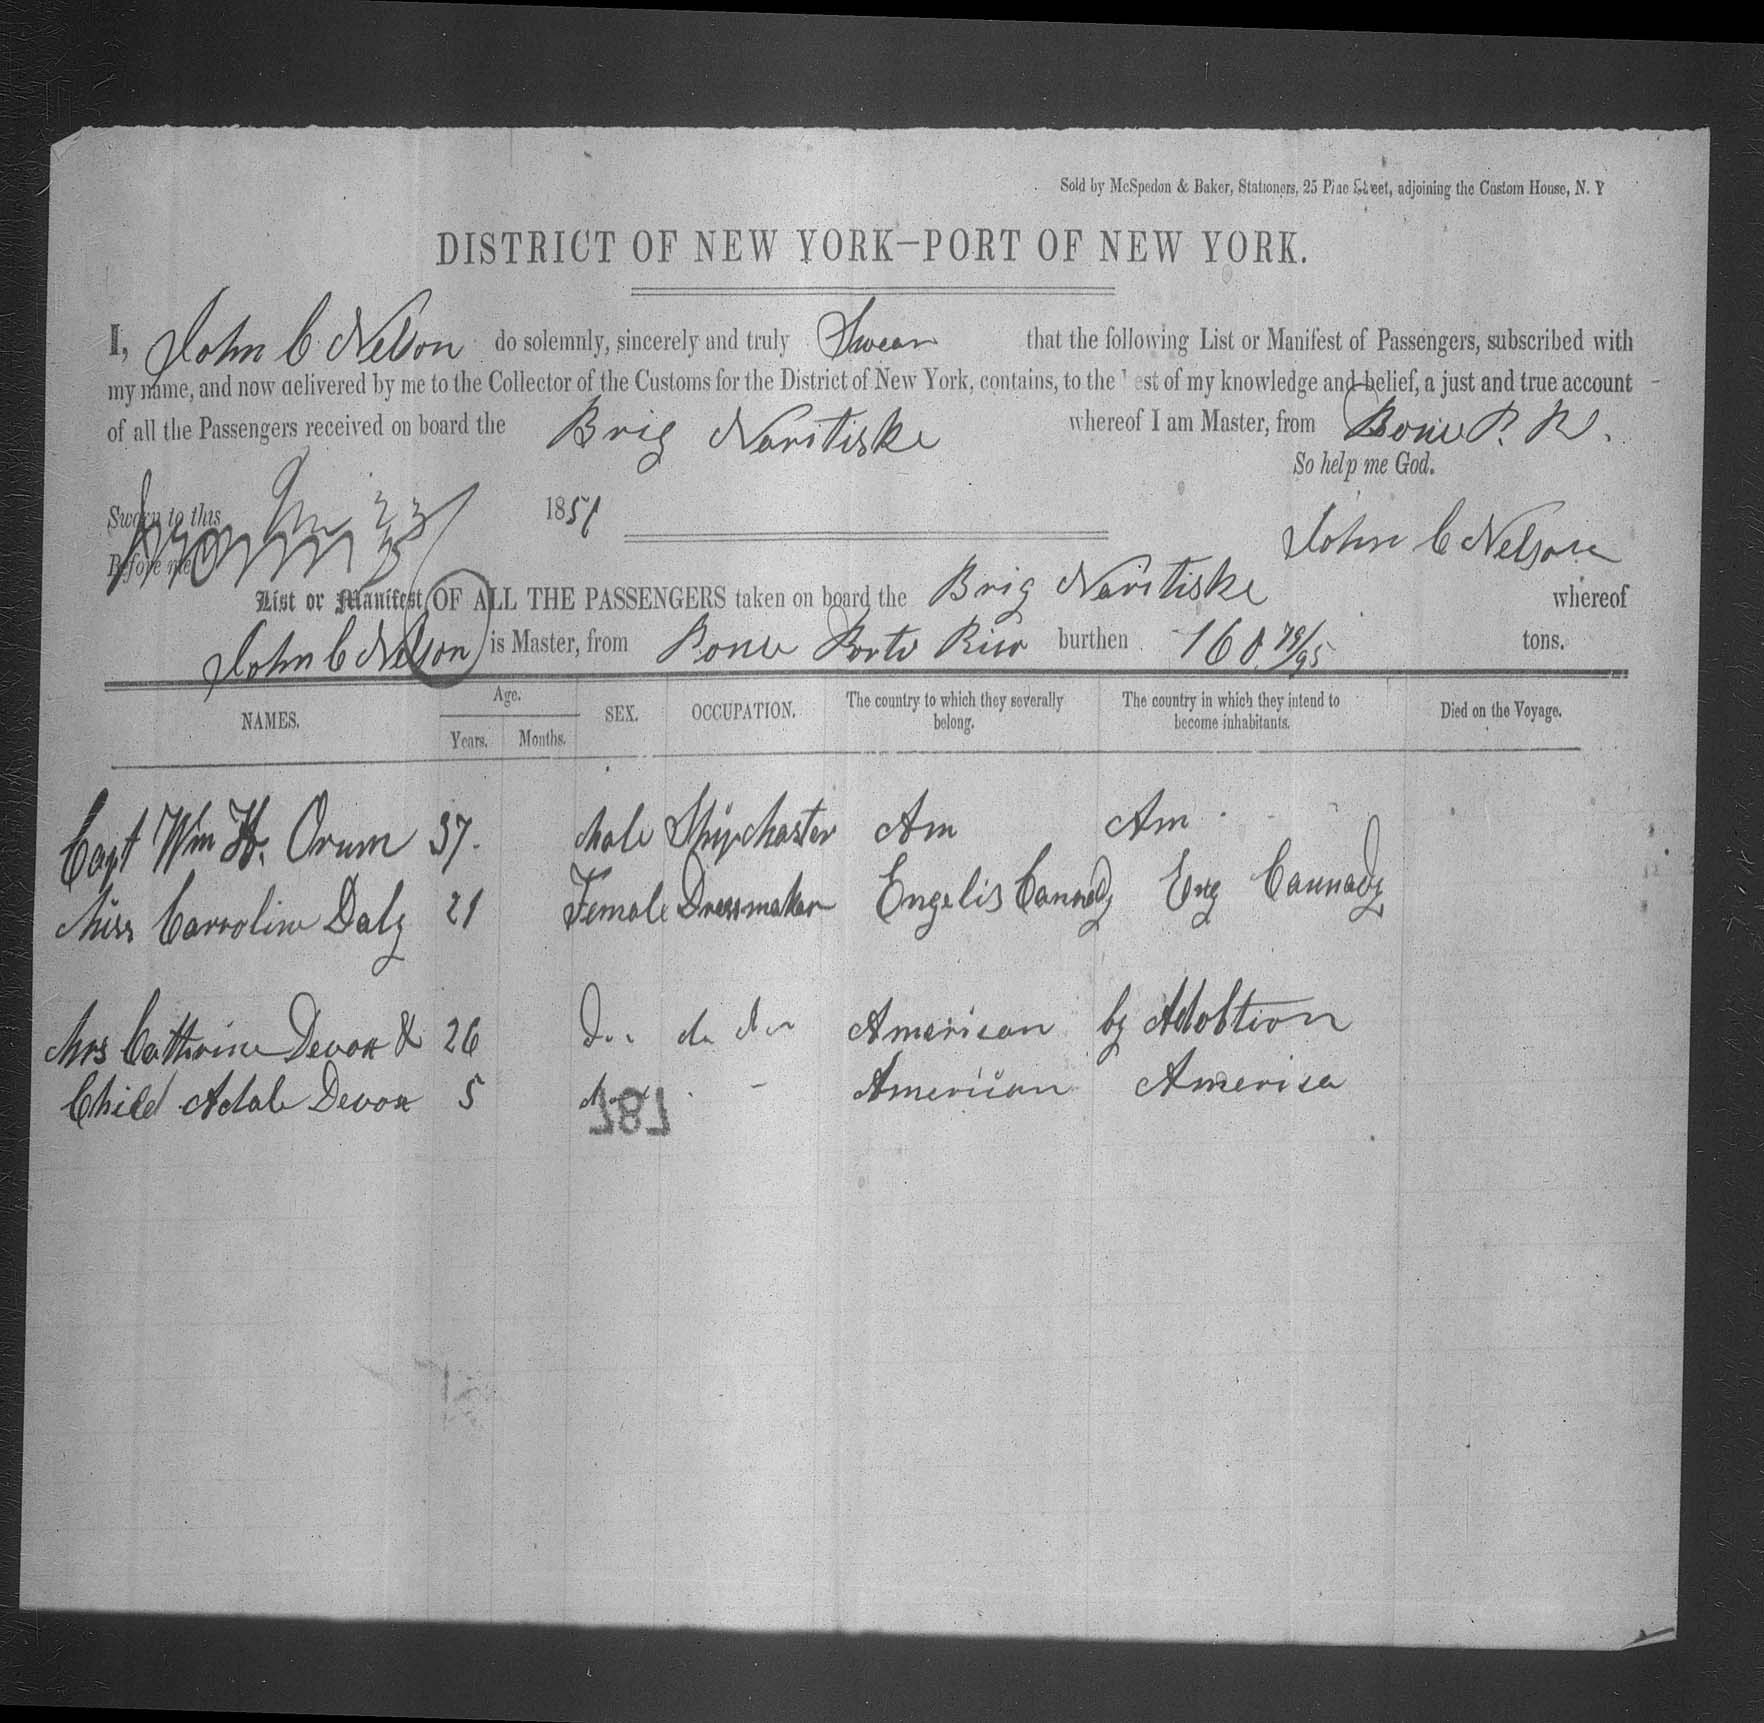 Sold by McSpedon & Baker, Stationers, 25 Pine Street, adjoining the Custom House, N. Y
DISTRICT OF NEW YORK—PORT OF NEW YORK.
I, John C Nelson do solemnly, sincerely and truly Swear that the following List or Manifest of Passengers, subscribed with
my name, and now delivered by me to the Collector of the Customs for the District of New York, contains, to the best of my knowledge and belief, a just and true account
of all the Passengers received on board the Brig Naritiske whereof I am Master, from Ponce P. R.
So help me God.
Sworn to this 23 1851
John C Nelson
Before me
List or Manifest OF ALL THE PASSENGERS taken on board the Brig Naritiske whereof
John C Nelson is Master, from Ponce Porto Rico burthen 168 79/95 tons.
NAMES. Age. Years. Months. SEX. OCCUPATION. The country to which they severally belong. The country in which they intend to become inhabitants. Died on the Voyage.
Capt Wm H. Orum 37. Male Ship Master Am Am
Miss Carroline Daly 21 Female Dressmaker Engelis Cannady Eng Cannady
Mrs Catherine Devon & 26 Do do do American by Adobtion
Child Adale Devon 5 American America
787